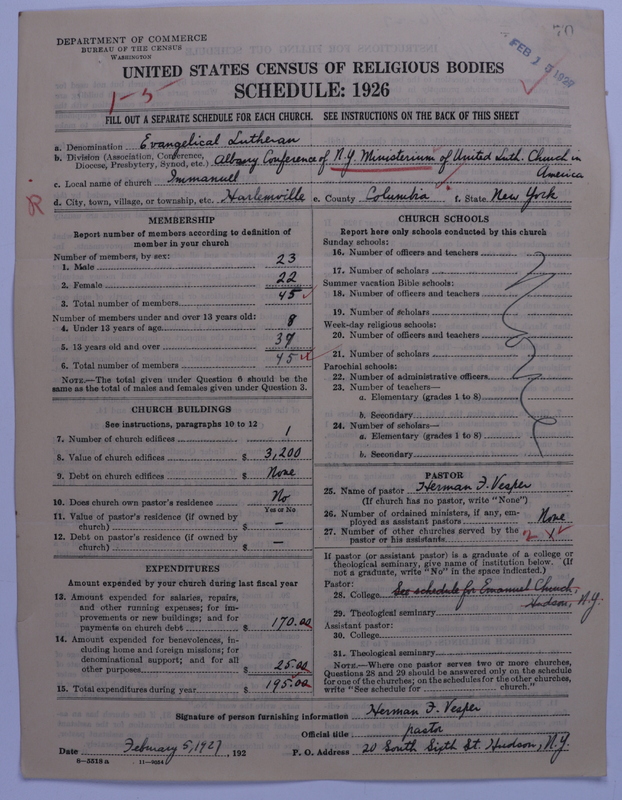 DEPARTMENT OF COMMERCE
BUREAU OF THE CENSUS
WASHINGTON
70
FEB 15 1927
UNITED STATES CENSUS OF RELIGIOUS BODIES
SCHEDULE: 1926
1-5
FILL OUT A SEPARATE SCHEDULE FOR EACH CHURCH. SEE INSTRUCTIONS ON THE BACK OF THIS SHEET
a. Denomination Evangelical Lutheran
b. Division (Association, Conference, Diocese, Presbytery, Synod, etc.) Albany Conference of N.Y. Ministerium of United Luth. Church in America
c. Local name of church Immanuel
R
d. City, town, village, or township, etc. Harlemville e. County Columbia f. State New York
MEMBERSHIP
Report number of members according to definition of
member in your church
Number of members, by sex:
1. Male 23
2. Female 22
3. Total number of members 45
Number of members under and over 13 years old:
4. Under 13 years of age 8
5. 13 years old and over 37
6. Total number of members 45
NOTE.—The total given under Question 6 should be
same as the total of males and females given under Question 3.
CHURCH BUILDINGS
See instructions, paragraphs 10 to 12
7. Number of church edifices 1
8. Value of church edifices $ 3,200
9. Debt on church edifices $ None
10. Does church own pastor's residence No
Yes or No
11. Value of pastor's residence (if owned by
church) $ —
12. Debt on pastor's residence (if owned by
church) $ —
EXPENDITURES
Amount expended by your church during last fiscal year
13. Amount expended for salaries, repairs,
and other running expenses; for im-
provements or new buildings; and for
payments on church debt $ 170.00
14. Amount expended for benevolences, in-
cluding home and foreign missions; for
denominational support; and for all
other purposes $ 25.00
15. Total expenditures during year $ 195.00
CHURCH SCHOOLS
Report here only schools conducted by this church
Sunday schools:
16. Number of officers and teachers
17. Number of scholars
Summer vacation Bible schools:
18. Number of officers and teachers
19. Number of scholars
Week-day religious schools:
20. Number of officers and teachers
21. Number of scholars
Parochial schools:
22. Number of administrative officers
23. Number of teachers—
a. Elementary (grades 1 to 8)
b. Secondary
24. Number of scholars—
a. Elementary (grades 1 to 8)
b. Secondary
PASTOR
25. Name of pastor Herman F. Vesper
(If church has no pastor, write "None")
26. Number of ordained ministers, if any, em-
ployed as assistant pastors None
27. Number of other churches served by the
pastor or his assistants 2 1
If pastor (or assistant pastor) is a graduate of a college or
theological seminary, give name of institution below. (If
not a graduate, write "No" in the space indicated.)
Pastor:
28. College See schedule for Emanuel Church,
Hudson, N.Y.
29. Theological seminary
Assistant pastor:
30. College
31. Theological seminary
NOTE.—Where one pastor serves two or more churches,
Questions 28 and 29 should be answered only on the schedule
for one of the churches; on the schedules for the other churches,
write "See schedule for church."
Signature of person furnishing information Herman F. Vesper
Official title pastor
Date February 5, 1927, 192 P. O. Address 20 South Sixth St. Hudson, N.Y.
8-5518a 11-9054